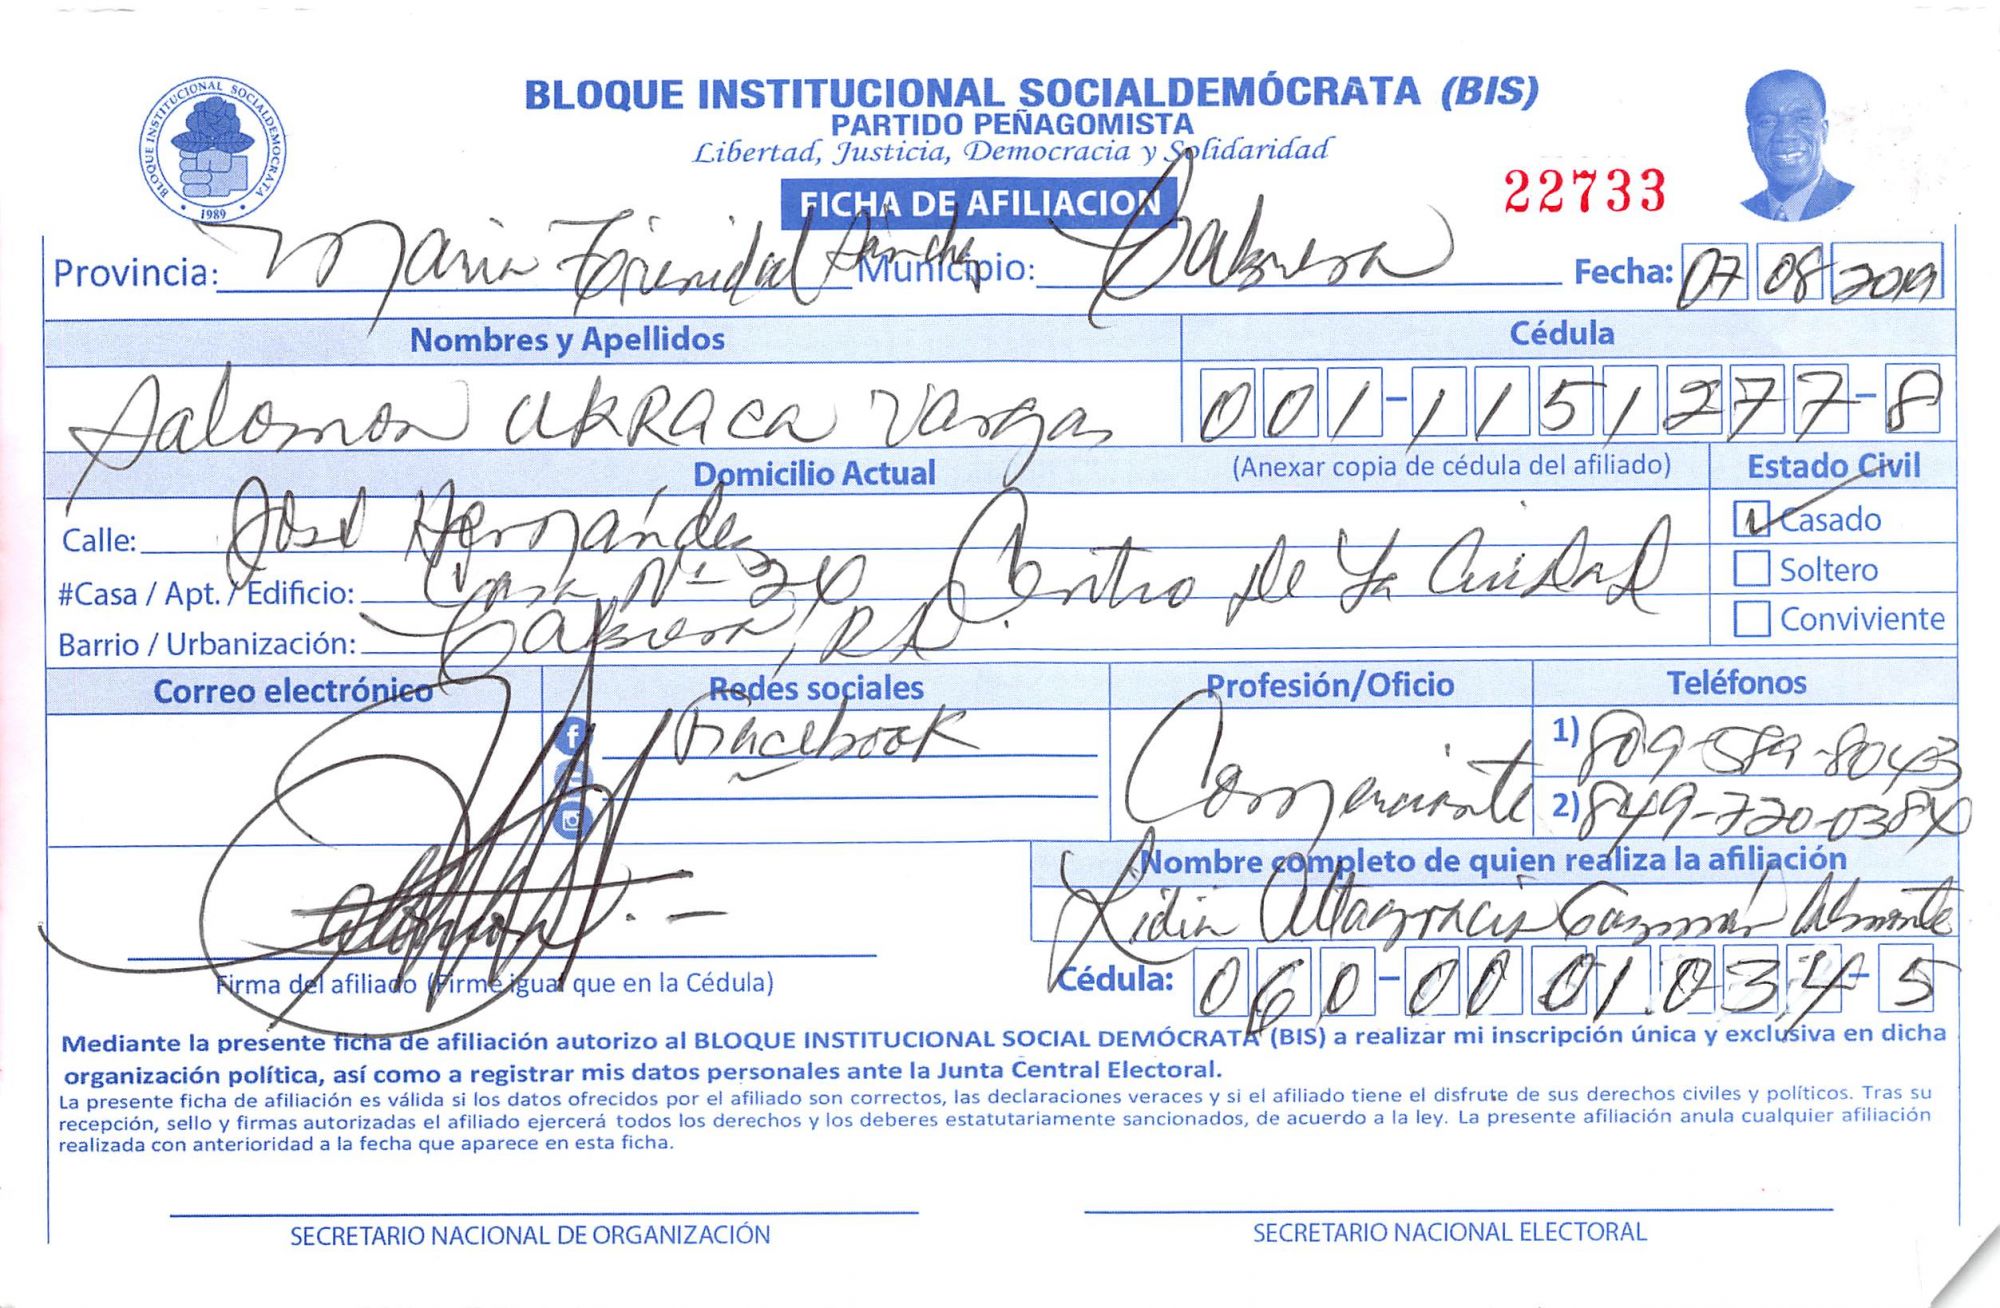 BLOQUE INSTITUCIONAL SOCIALDEMÓCRATA (BIS)
PARTIDO PEÑAGOMISTA
Libertad, Justicia, Democracia y Solidaridad
BLOQUE INSTITUCIONAL SOCIALDEMOCRATA
1989
FICHA DE AFILIACION
22733
Provincia: Maria Trinidad Sánchez Municipio: Cabrera Fecha: 07 08 2019
Nombres y Apellidos Cédula
Salomon URRACA Vargas 001-1151277-8
Domicilio Actual (Anexar copia de cédula del afiliado) Estado Civil
Calle: José Hernández Casado
#Casa / Apt. / Edificio: Casa Nº 24 Centro De La Ciudad Soltero
Barrio / Urbanización: Cabrera, RD. Conviviente
Correo electrónico Redes sociales Profesión/Oficio Teléfonos
Facebook Comerciante 1) 809-589-8043
2) 849-720-0384
Nombre completo de quien realiza la afiliación
Lidia Altagracia Guzmán Almonte
Firma del afiliado (Firme igual que en la Cédula) Cédula: 060-0001034-5
Mediante la presente ficha de afiliación autorizo al BLOQUE INSTITUCIONAL SOCIAL DEMÓCRATA (BIS) a realizar mi inscripción única y exclusiva en dicha
organización política, así como a registrar mis datos personales ante la Junta Central Electoral.
La presente ficha de afiliación es válida si los datos ofrecidos por el afiliado son correctos, las declaraciones veraces y si el afiliado tiene el disfrute de sus derechos civiles y políticos. Tras su
recepción, sello y firmas autorizadas el afiliado ejercerá todos los derechos y los deberes estatutariamente sancionados, de acuerdo a la ley. La presente afiliación anula cualquier afiliación
realizada con anterioridad a la fecha que aparece en esta ficha.
SECRETARIO NACIONAL DE ORGANIZACIÓN SECRETARIO NACIONAL ELECTORAL